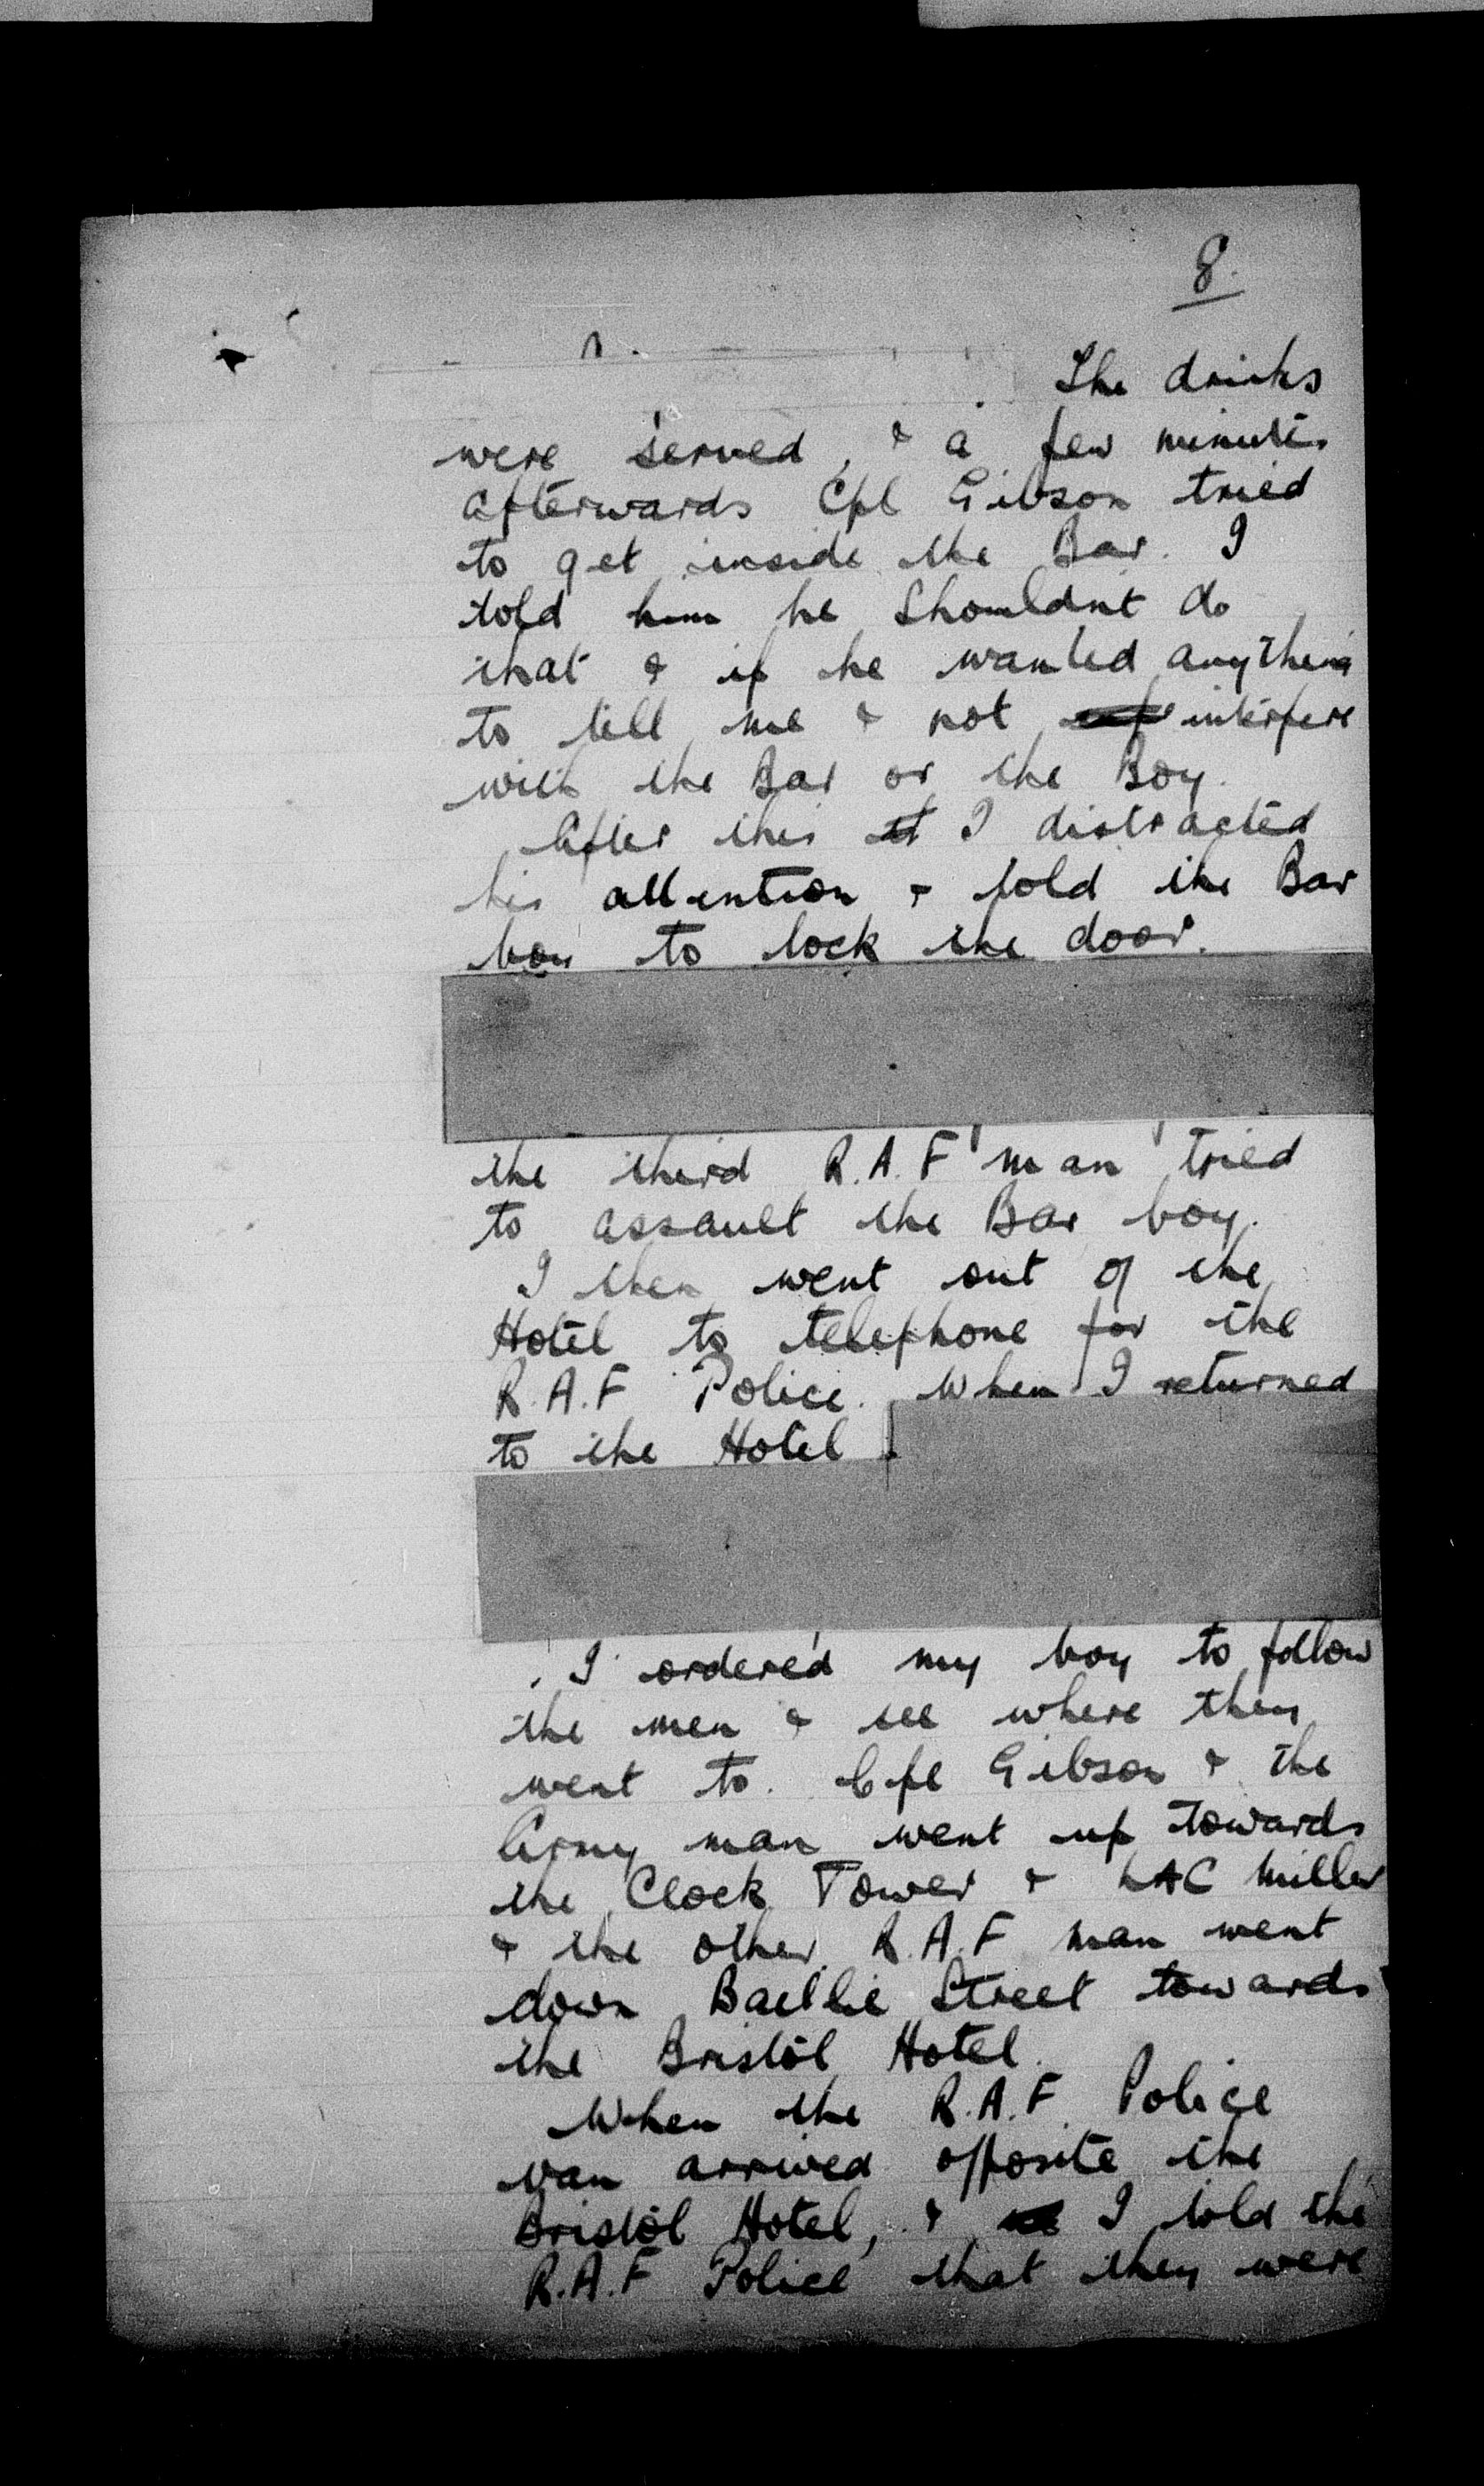 8.
The drinks
were served, & a few minutes
afterwards Cpl Gibson tried
to get inside the Bar. I
told him he shouldnt do
that & if he wanted anything
to tell me & not interfere
with the Bar or the Boy.
After this I distracted
his attention & told the Bar
boy to lock the door.
the third R.A.F man tried
to assault the Bar boy.
I then went out of the
Hotel to telephone for the
R.A.F Police. When I returned
to the Hotel
I ordered my boy to follow
the men & see where they
went to. Cpl Gibson & the
Army man went up towards
the Clock Tower & LAC Miller
& the other R.A.F man went
down Baillie Street towards
the Bristol Hotel.
When the R.A.F. Police
van arrived opposite the
Bristol Hotel, & I told the
R.A.F Police that they were